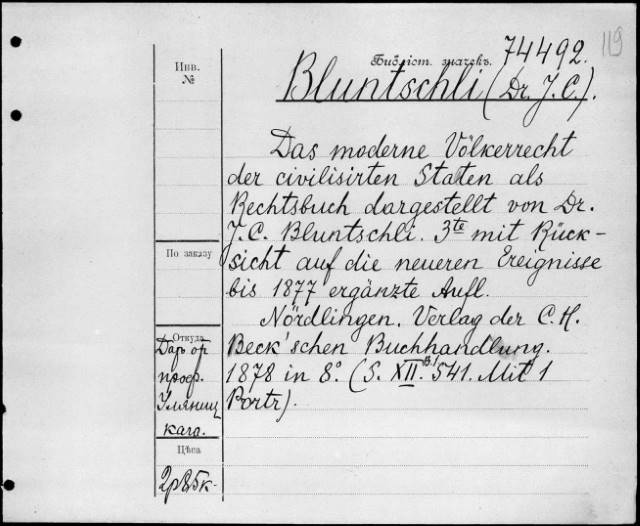 119
Инв.
№
Библіот. значекъ. 74492.
Bluntschli (Dr. J. C.).
Das moderne Völkerrecht
der civilisirten Staten als
Rechtsbuch dargestellt von Dr.
J. C. Bluntschli. 3te mit Rück-
sicht auf die neueren Ereignisse
bis 1877 ergänzte Aufl.
Nördlingen. Verlag der C. H.
Beck'schen Buchhandlung.
1878 in 8°. (S. XII. 541. Mit 1
Portr).
По заказу
Откуда
Даръ от
проф.
Уляниц
каго.
Цѣна